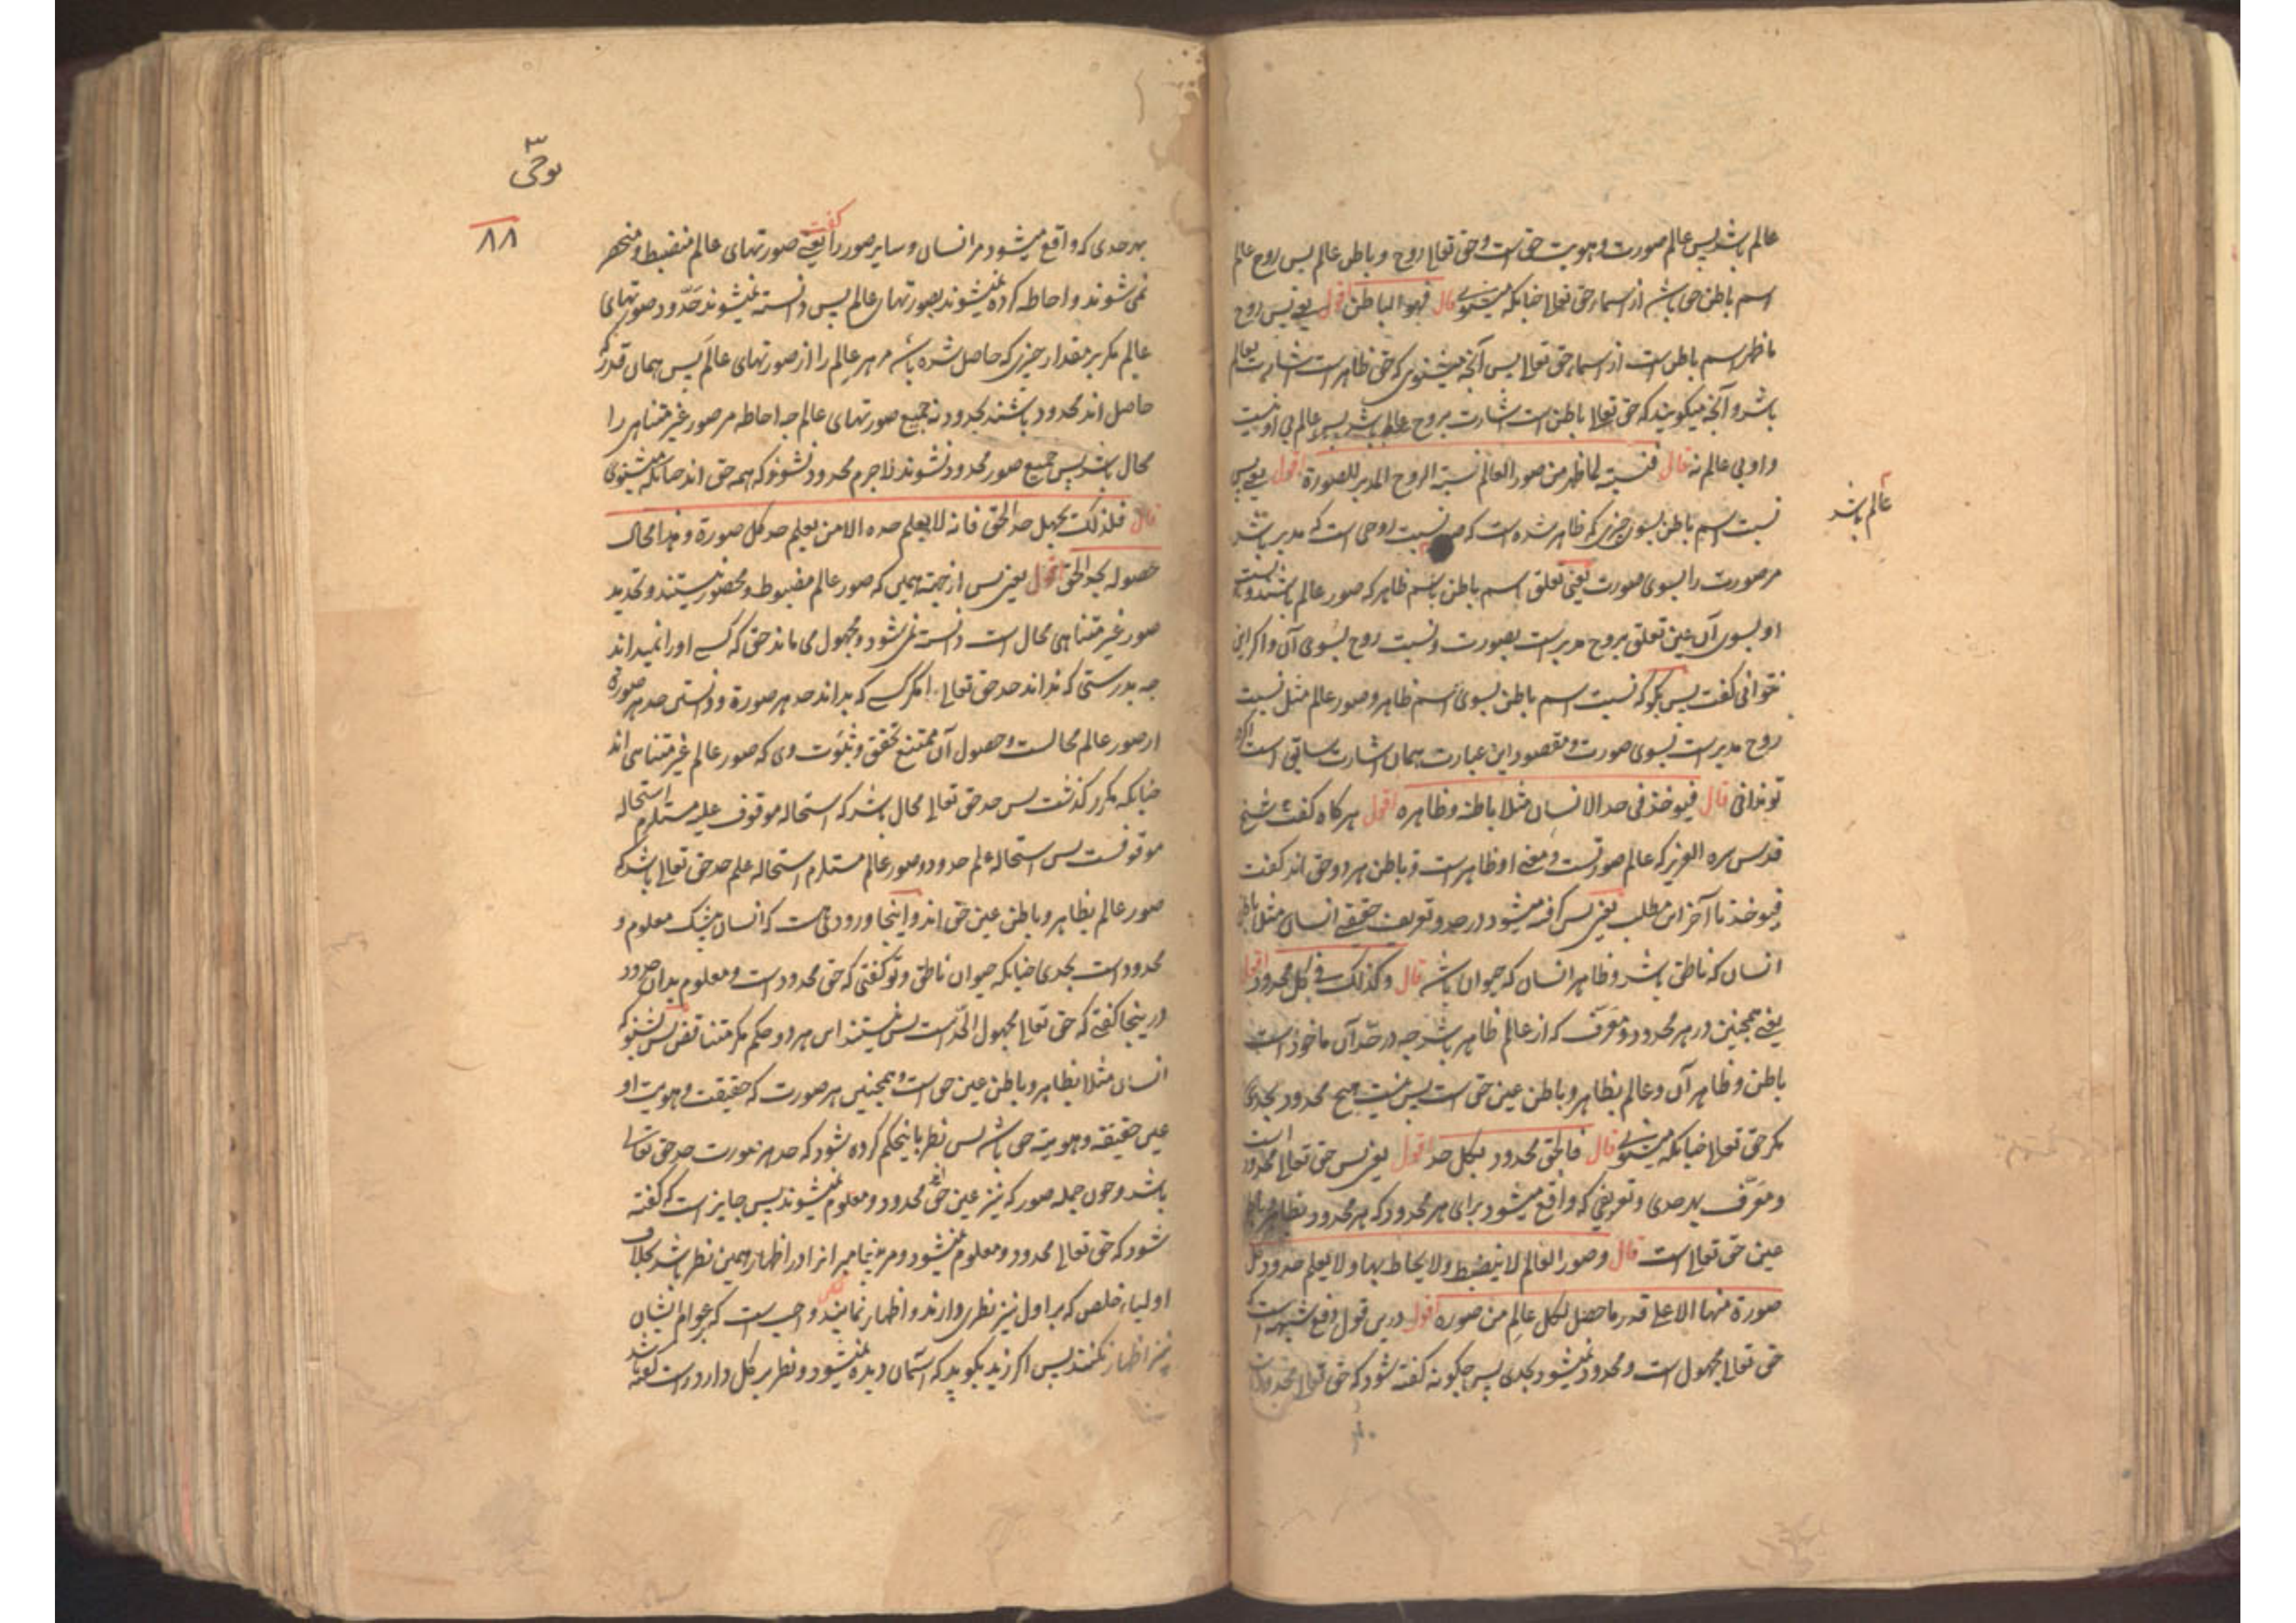 عالم باشد پس عالم صورت و هویت حق است و حق تعالی روح و باطن عالم پس روح عالم
اسم باطن حق باشد از اسماء حق تعالی چنانکه میشنوی قال فهو الباطن اقول یعنی پس روح
مظهر اسم باطن است از اسماء حق تعالی پس آنچه میشنوی که حق ظاهر است اشارت بعالم
باشد و آنچه میگویند که حق تعالی باطن است اشارت بروح عالم باشد پس عالم بی او نیست
و او بی عالم نه قال فنسبته لما ظهر من صور العالم نسبة الروح المدبر للصورة اقول یعنی پس
نسبت اسم باطن بسوی چیزی که ظاهر شده است که صور نسبت روحی است که مدبر باشد
عالم باشد
مر صورت را بسوی صورت یعنی تعلق اسم باطن باسم ظاهر که صور عالم باشند و نسبت
او بسوی آن عین تعلق بروح مدبر است بصورت و نسبت روح بسوی آن و اگر این
نتوانی گفت پس بگو که نسبت اسم باطن بسوی اسم ظاهر و صور عالم مثل نسبت
روح مدبر است بسوی صورت و مقصود این عبارت همان اشارت سابق است اگر
تو ندانی قال فیوخذ فی حد الانسان مثلا باطنه و ظاهره اقول هرگاه گفت شیخ
قدس سره العزیز که عالم صورتست و معنی او ظاهر است و باطن هر دو حق اند گفت
فیوخذ تا آخر این مطلب یعنی پس گرفته میشود در حد و تعریف حقیقی انسان مثلا باطن
انسان که ناطق باشد و ظاهر انسان که حیوان باشد قال و کذلک فی کل محدود اقول
یعنی همچنین در هر محدود و معرف که از عالم ظاهر باشد چه در حد آن ماخوذ است
باطن و ظاهر آن و عالم بظاهر و باطن عین حق است پس نیست هیچ محدود بحدی
مگر حق تعالی چنانکه میشنوی قال فالحق محدود بکل حد اقول یعنی پس حق تعالی محدود است
و معرف بهر حدی و تعریفی که واقع میشود برای هر محدود که هر محدود بظاهر و باطن
عین حق تعالی است قال و صور العالم لا ینضبط و لا یحاط بها و لا یعلم حدود کل
صورة منها الا علی قدر ما حصل لکل عالم من صوره اقول درین قول دفع شبهه است که
حق تعالی مجهول است و محدود نمیشود بحدی پس چگونه گفته شود که حق تعالی محدود است
نوحی
٨٨
بهر حدی که واقع میشود مر انسان و سایر صور را گفت یعنی صورتهای عالم منضبط و منحصر
نمی شوند و احاطه کرده نمیشوند بصورتهای عالم پس دانسته نمیشوند حدود صورتهای
عالم مگر بر مقدار چیزی که حاصل شده باشد مر هر عالم را از صورتهای عالم پس همان قدر که
حاصل اند محدود باشند بحدود نه جمیع صورتهای عالم چه احاطه مر صور غیر متناهی را
محال باشد پس جمیع صور محدود نشوند لاجرم محدود نشوند که همه حق اند چنانکه میشنوی
قال فلذلک یجهل حد الحق فانه لا یعلم حده الا من یعلم حد کل صورة و هذا محال
حصوله بحد الحق اقول یعنی پس از جهة همین که صور عالم مضبوط و محصور نیستند و تحدید
صور غیر متناهی محال است دانسته نمی شود و مجهول می ماند حق که کسی او را نمیداند
چه بدرستی که نداند حد حق تعالی مگر کسی که بداند حد هر صورة و دانستن حد هر صورة
از صور عالم محالست و حصول آن ممتنع تحقق و ثبوت وی که صور عالم غیر متناهی اند
چنانکه مکرر گذشت پس حد حق تعالی محال باشد که استحاله موقوف علیه مستلزم استحاله
موقوفست پس استحاله علم حدود صور عالم مستلزم استحاله علم حد حق تعالی باشد که
صور عالم بظاهر و باطن عین حق اند و اینجا ورودی است که انسان بیشک معلوم و
محدود است بحدی چنانکه حیوان ناطق و تو گفتی که حق محدود است و معلوم بدان حدود
درینجا گفتی که حق تعالی مجهول الحد است پس نیستند این هر دو حکم مگر متناقض پس بشنو که
انسان مثلا بظاهر و باطن عین حق است و همچنین هر صورت که حقیقت و هویت او
عین حقیقه و هویته حق باشد پس نظر باینحکم کرده شود که حد هر صورت حد حق تعالی
باشد و چون جمله صور که نیز عین حق اند محدود و معلوم نمیشوند پس جایز است که گفته
شود که حق تعالی محدود و معلوم نمیشود و مر پیغامبرانرا در اظهار همین نظر باشد بخلاف
اولیاء خلص که بر اول نیز نظر دارند و اظهار نمایند و واجب است که بر عوام ایشان
نیز اظهار نکنند پس اگر زید بگوید که آسمان دیده نمیشود و نظر بر کل دارد راست گفته باشد